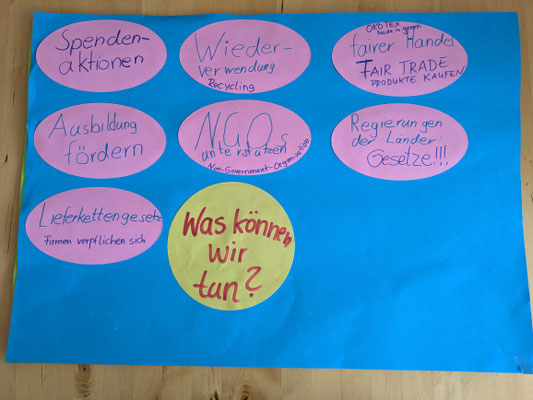 Spenden-
aktionen
Wieder-
verwendung
Recycling
ÖKOTEX
Made in green
fairer Handel
FAIR TRADE
PRODUKTE KAUFEN
Ausbildung
fördern
NGOs
unterstützen
Non-Government-Organisations
Regierungen
der Länder:
Gesetze!!!
Lieferkettengesetz
Firmen verpflichen sich
Was können
wir
tun?